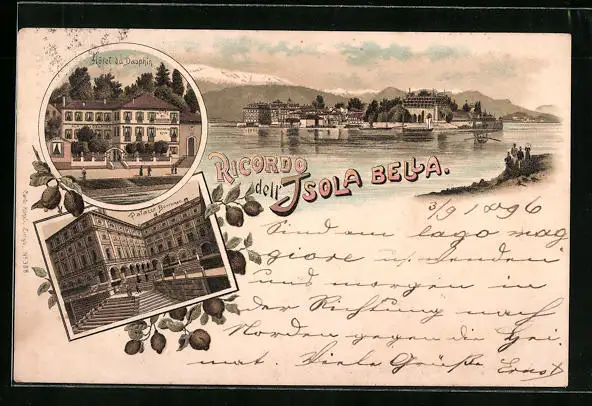 Hôtel du Dauphin
RICORDO
dell' ISOLA BELLA.
Palazzo Borromeo
3/9 1896
Sind am lago mag
giore u. wenden
und morgen in
der Richtung nach
Norden gegen die Hei-
mat. Viele Grüße Ernst